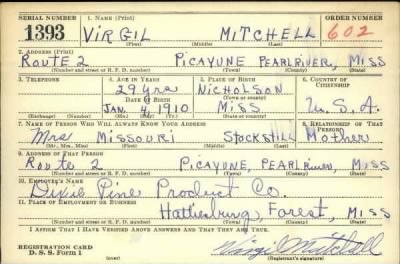 SERIAL NUMBER 1. NAME (Print) ORDER NUMBER
1393 VIRGIL MITCHELL 602
(First) (Middle) (Last)
2. ADDRESS (Print)
ROUTE 2 PICAYUNE PEARLRIVER, MISS
(Number and street or R. F. D. number) (Town) (County) (State)
3. TELEPHONE 4. AGE IN YEARS 5. PLACE OF BIRTH 6. COUNTRY OF CITIZENSHIP
29 yrs NICHOLSON
DATE OF BIRTH (Town or county)
JAN. 4, 1910 MISS U.S.A.
(Exchange) (Number) (Mo.) (Day) (Yr.) (State or country)
7. NAME OF PERSON WHO WILL ALWAYS KNOW YOUR ADDRESS 8. RELATIONSHIP OF THAT PERSON
Mrs MISSOURI STOCKSTILL Mother
(Mr., Mrs., Miss) (First) (Middle) (Last)
9. ADDRESS OF THAT PERSON
Route 2 PICAYUNE, PEARL River, MISS
(Number and street or R. F. D. number) (Town) (County) (State)
10. EMPLOYER'S NAME
Dixie Pine Product Co.
11. PLACE OF EMPLOYMENT OR BUSINESS
Hattiesburg, Forest, MISS
(Number and street or R. F. D. number) (Town) (County) (State)
I AFFIRM THAT I HAVE VERIFIED ABOVE ANSWERS AND THAT THEY ARE TRUE.
REGISTRATION CARD
D. S. S. Form 1 Virgil Mitchell
(Registrant's signature)